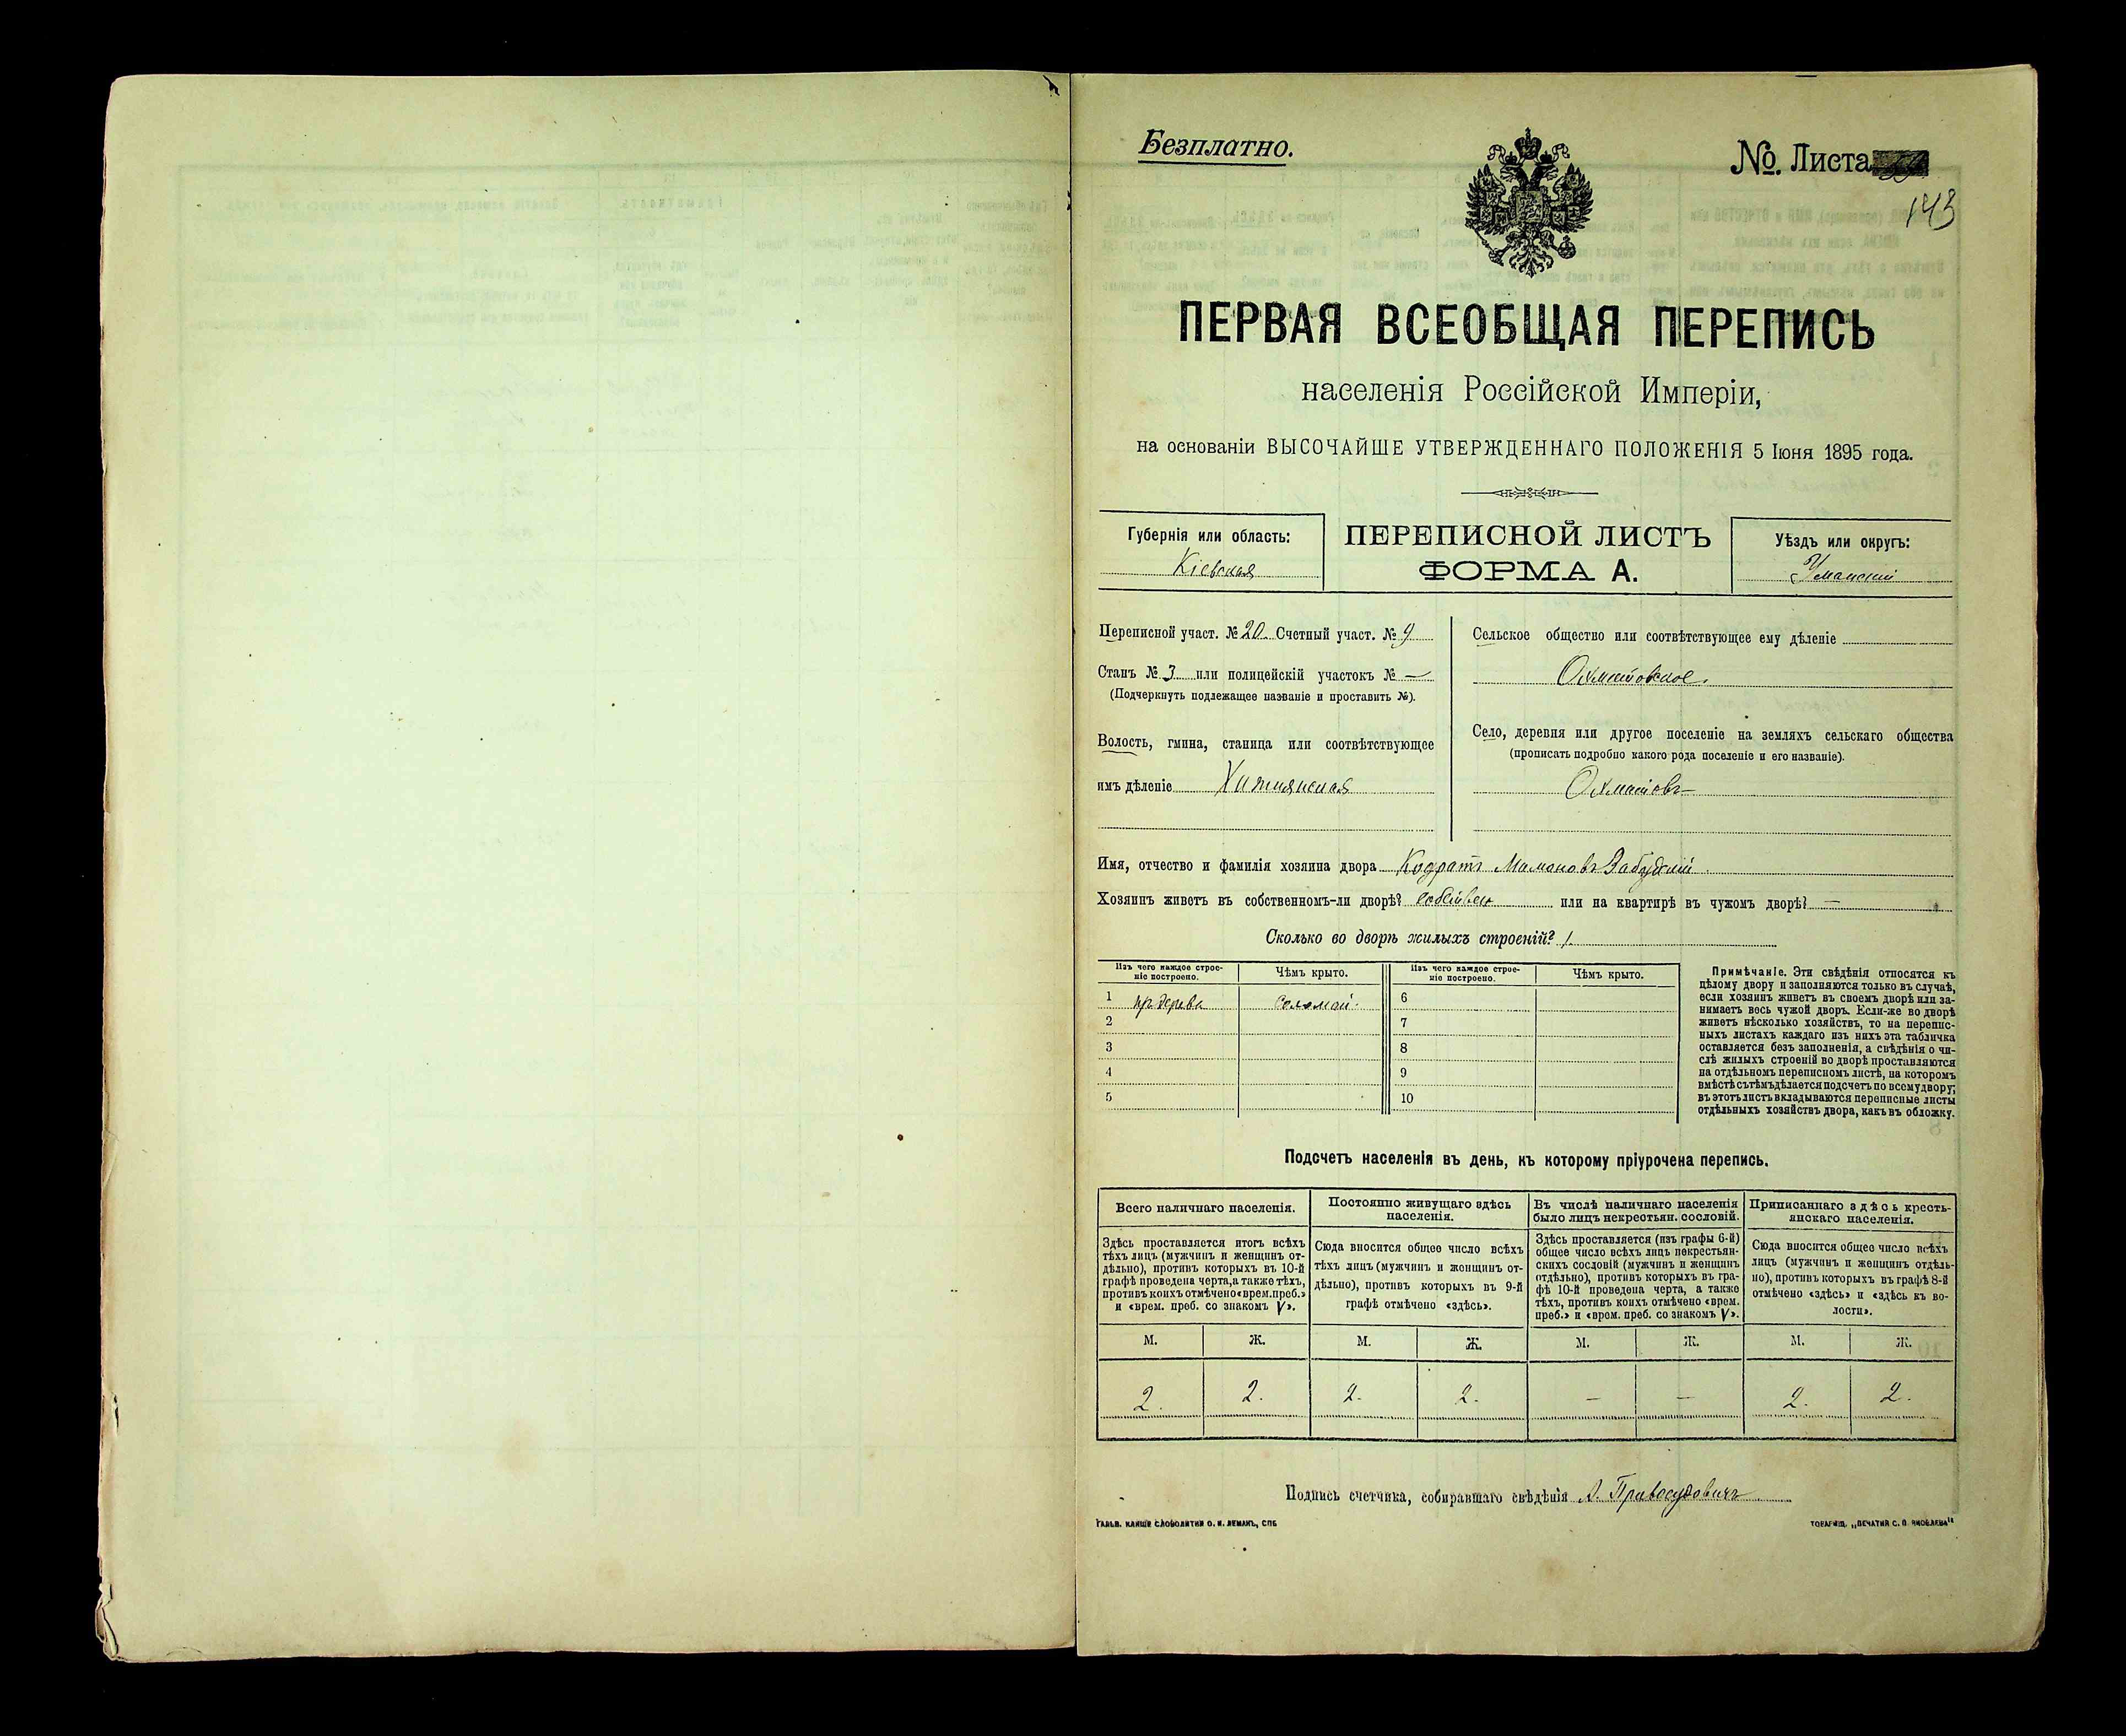 Безплатно.
№. Листа
143
ПЕРВАЯ ВСЕОБЩАЯ ПЕРЕПИСЬ
населенія Россійской Имперіи,
на основаніи ВЫСОЧАЙШЕ УТВЕРЖДЕННАГО ПОЛОЖЕНІЯ 5 Іюня 1895 года.
Губернія или область:
Кіевская
ПЕРЕПИСНОЙ ЛИСТЪ
ФОРМА А.
Уѣздъ или округъ:
Уманскій
Переписной участ. № 20 Счетный участ. № 9
Станъ № 3 или полицейскій участокъ № —
(Подчеркнуть подлежащее названіе и проставить №).
Волость, гмина, станица или соотвѣтствующее
имъ дѣленіе
Сельское общество или соотвѣтствующее ему дѣленіе
Охматовское.
Село, деревня или другое поселеніе на земляхъ сельскаго общества
(прописать подробно какого рода поселеніе и его названіе).
Охматовъ
Имя, отчество и фамилія хозяина двора Кодратъ
Хозяинъ живетъ въ собственномъ-ли дворѣ? или на квартирѣ въ чужомъ дворѣ? —
Сколько во дворѣ жилыхъ строеній? 1
Изъ чего каждое строе-
ніе построено.
Чѣмъ крыто.
Изъ чего каждое строе-
ніе построено.
Чѣмъ крыто.
1 дерева
2
3
4
5
6
7
8
9
10
Примѣчаніе. Эти свѣдѣнія относятся къ
цѣлому двору и заполняются только въ случаѣ,
если хозяинъ живетъ въ своемъ дворѣ или за-
нимаетъ весь чужой дворъ. Если-же во дворѣ
живетъ нѣсколько хозяйствъ, то на перепис-
ныхъ листахъ каждаго изъ нихъ эта табличка
оставляется безъ заполненія, а свѣдѣнія о чи-
слѣ жилыхъ строеній во дворѣ проставляются
на отдѣльномъ переписномъ листѣ, на которомъ
вмѣстѣ съ тѣмъ дѣлается подсчетъ по всему двору;
въ этотъ листъ вкладываются переписные листы
отдѣльныхъ хозяйствъ двора, какъ въ обложку.
Подсчетъ населенія въ день, къ которому пріурочена перепись.
Всего наличнаго населенія.
Здѣсь проставляется итогъ всѣхъ
тѣхъ лицъ (мужчинъ и женщинъ от-
дѣльно), противъ которыхъ въ 10-й
графѣ проведена черта, а также тѣхъ,
противъ коихъ отмѣчено «врем. преб.»
и «врем. преб. со знакомъ V».
Постоянно живущаго здѣсь
населенія.
Сюда вносится общее число всѣхъ
тѣхъ лицъ (мужчинъ и женщинъ от-
дѣльно), противъ которыхъ въ 9-й
графѣ отмѣчено «здѣсь».
Въ числѣ наличнаго населенія
было лицъ некрестьян. сословій.
Здѣсь проставляется (изъ графы 6-й)
общее число всѣхъ лицъ некрестьян-
скихъ сословій (мужчинъ и женщинъ
отдѣльно), противъ которыхъ въ гра-
фѣ 10-й проведена черта, а также
тѣхъ, противъ коихъ отмѣчено «врем.
преб.» и «врем. преб. со знакомъ V».
Приписаннаго здѣсь кресть-
янскаго населенія.
Сюда вносится общее число всѣхъ
лицъ (мужчинъ и женщинъ отдѣль-
но), противъ которыхъ въ графѣ 8-й
отмѣчено «здѣсь» и «здѣсь къ во-
лости».
М. Ж. М. Ж. М. Ж. М. Ж.
2. 2. 2. 2. — — 2. 2.
Подпись счетчика, собиравшаго свѣдѣнія А. Правосудовичъ
ГАЛЬВ. КЛИШЕ СЛОВОЛИТНИ О. И. ЛЕМАНЪ, СПБ
ТОВАРИЩ. „ПЕЧАТНЯ С. П. ЯКОВЛЕВА"